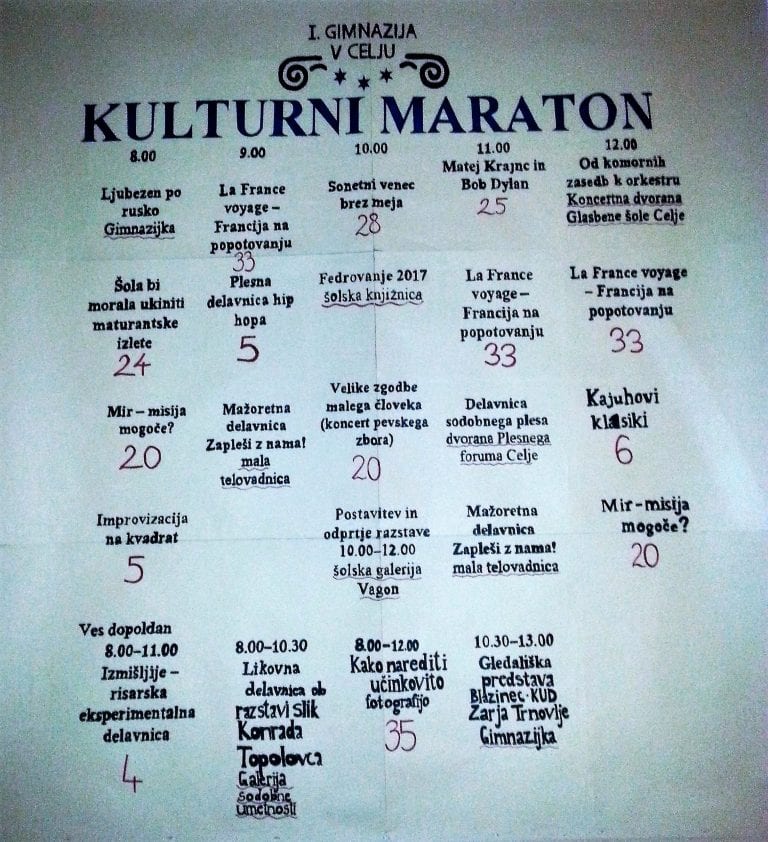 I. GIMNAZIJA
V CELJU
KULTURNI MARATON
8.00
Ljubezen po
rusko
Gimnazijka
Šola bi
morala ukiniti
maturantske
izlete
24
Mir – misija
mogoče?
20
Improvizacija
na kvadrat
5
9.00
La France
voyage –
Francija na
popotovanju
33
Plesna
delavnica hip
hopa
5
Mažoretna
delavnica
Zapleši z nama!
mala
telovadnica
10.00
Sonetni venec
brez meja
28
Fedrovanje 2017
šolska knjižnica
Velike zgodbe
malega človeka
(koncert pevskega
zbora)
20
Postavitev in
odprtje razstave
10.00–12.00
šolska galerija
Vagon
11.00
Matej Krajnc in
Bob Dylan
25
La France
voyage –
Francija na
popotovanju
33
Delavnica
sodobnega plesa
dvorana Plesnega
foruma Celje
Mažoretna
delavnica
Zapleši z nama!
mala telovadnica
12.00
Od komornih
zasedb k orkestru
Koncertna dvorana
Glasbene šole Celje
La France voyage
– Francija na
popotovanju
33
Kajuhovi
klasiki
6
Mir – misija
mogoče?
20
Ves dopoldan
8.00–11.00
Izmišljije –
risarska
eksperimentalna
delavnica
4
8.00–10.30
Likovna
delavnica ob
razstavi slik
Konrada
Topolovca
Galerija
sodobne
umetnosti
8.00–12.00
Kako narediti
učinkovito
fotografijo
35
10.30–13.00
Gledališka
predstava
Blazinec - KUD
Zarja Trnovlje
Gimnazijka